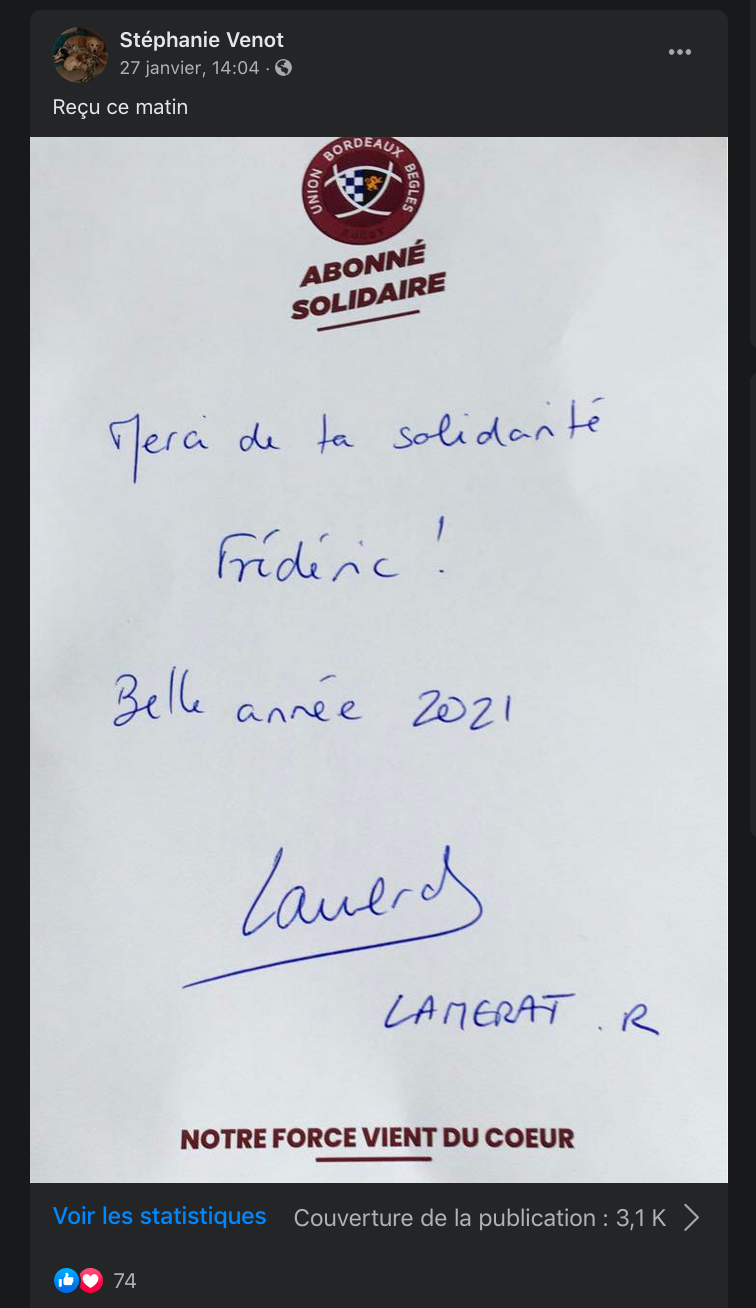 Stéphanie Venot
27 janvier, 14:04 ·
Reçu ce matin
UNION BORDEAUX BEGLES
RUGBY
ABONNÉ
SOLIDAIRE
Merci de ta solidarité
Frédéric !
Belle année 2021
Lamerat
LAMERAT . R
NOTRE FORCE VIENT DU COEUR
Voir les statistiques Couverture de la publication : 3,1 K
74